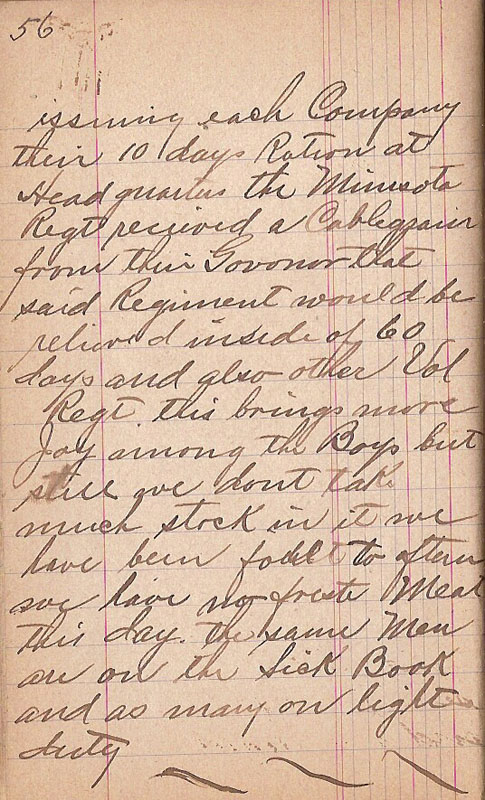 56
issuing each Company
their 10 days Ration at
Headquarters the Minisota
Regt received a Cablegram
from their Govonor that
said Regiment would be
relieved inside of 60
days and also other Vol
Regt this brings more
Joy among the Boys but
still we dont take
much stock in it we
have been foolet to often
we have no fresh Meat
this day. the same Men
are on the Sick Book
and as many on light
duty